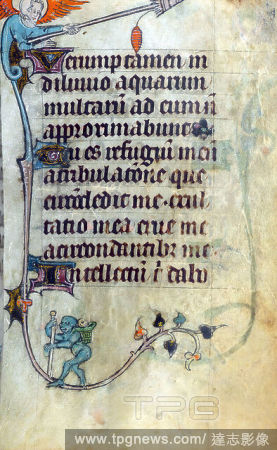 Verumptamen in
diluuio aquarum
multarum ad eum n
approximabunt
Tu es refugium meu
a tribulatione que
circumdedit me exul
tatio mea erue me
a circumdantibus me
Intellectum t dabo
TPG
www.tpgnews.com / 達志影像